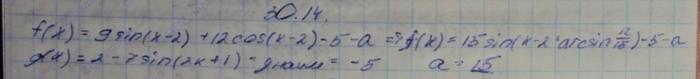 30.14.
f(x) = 9 sin(x-2) + 12 cos(x-2) - 5 - a => f(x) = 15 sin(x-2+arcsin 12/15) - 5 - a
g(x) = 2 - 7 sin(2x+1) - gнаим = -5 a = 15